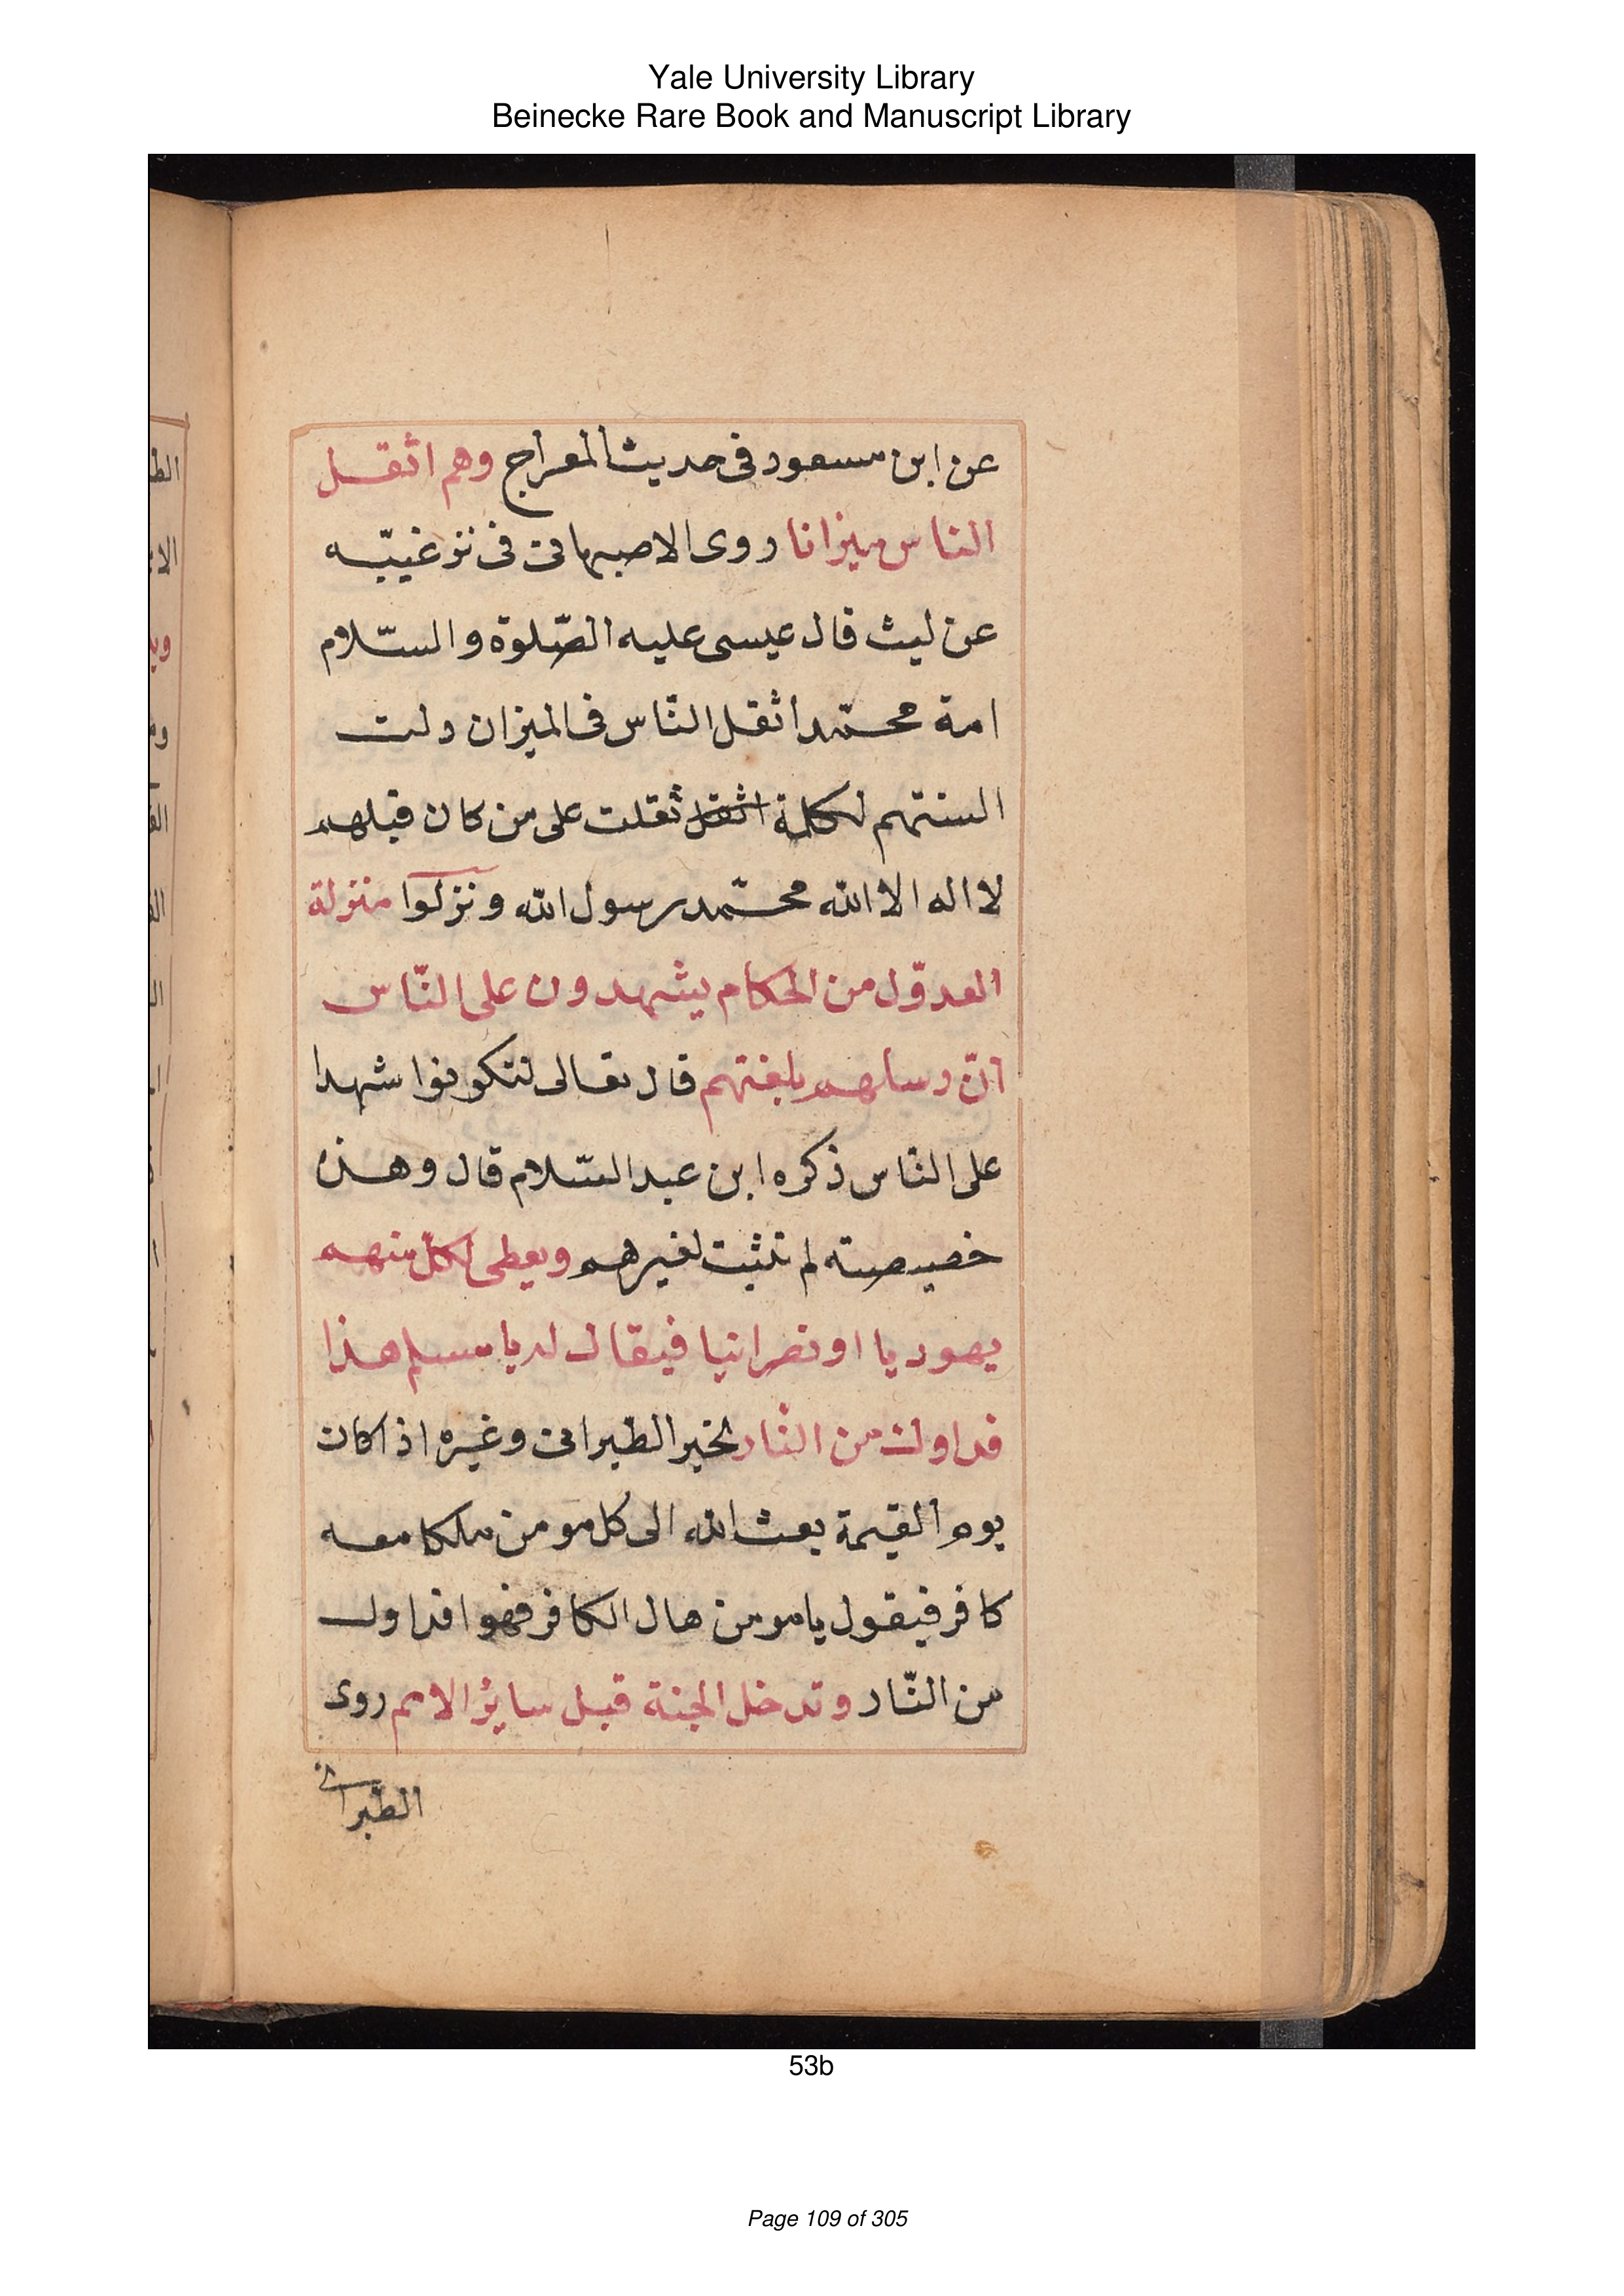 Yale University Library
Beinecke Rare Book and Manuscript Library
عن ابن مسعود فى حديث المعراج وهم اثقل
الناس ميزانا روى الاصبهانى فى ترغيبه
عن ليث قال عيسى عليه الصّلوة والسّلام
امة محمّد اثقل النّاس فى الميزان دلت
السنتهم لكلمة اثقل ثقلت على من كان قبلهم
لا اله الا الله محمّد رسول الله ونزلوا منزلة
العدّول من الحكام يشهدون على النّاس
انّ رسلهم بلغتهم قال تعالى لتكونوا شهدا
على النّاس ذكره ابن عبد السّلام قال وهذه
خصيصته لم تثبت لغيرهم ويعطى لكلّ منهم
يهوديا او نصرانيا فيقال له يا مسلم هذا
فداوك من النّار لخبر الطبرانى وغيره اذا كان
يوم القيمة بعث الله الى كل مومن ملكا معه
كافر فيقول يا مومن هال الكافر فهوا فداوك
من النّار وتدخل الجنة قبل سائر الامم روى
الطّبرانى
53b
Page 109 of 305